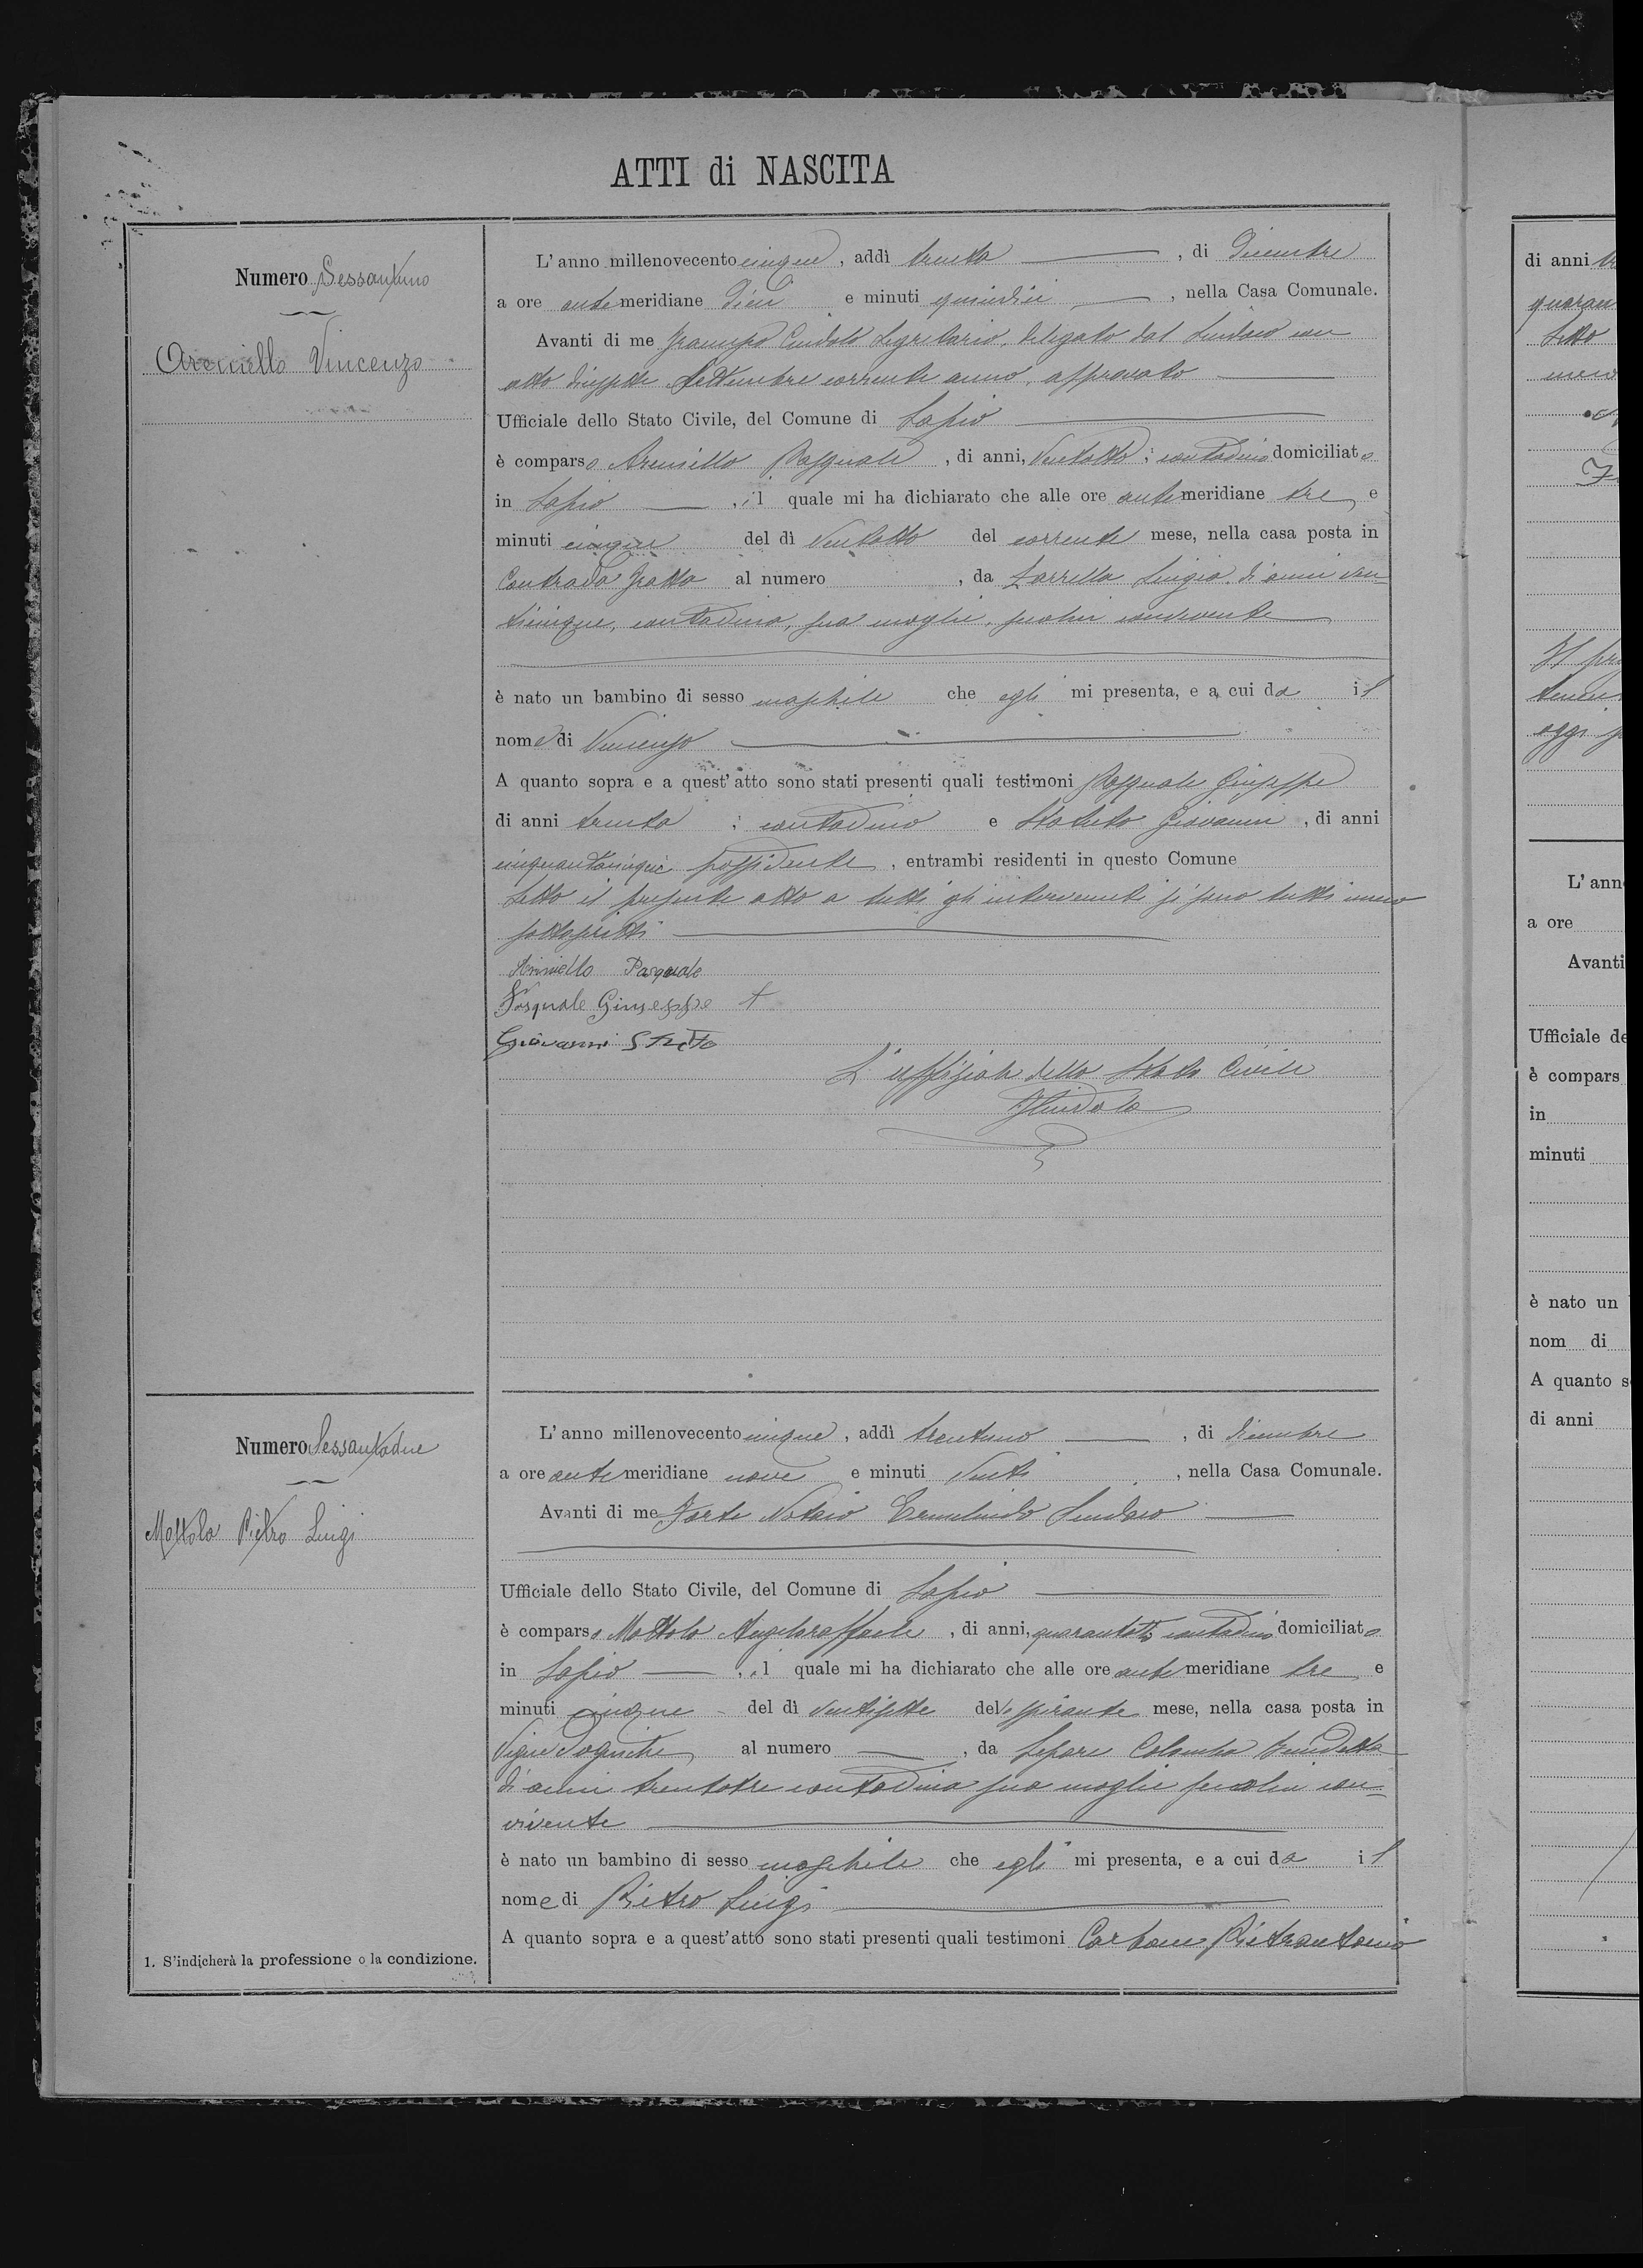 ATTI di NASCITA
Numero Sessantuno
Arminiello Vincenzo
L'anno millenovecento cinque, addì trenta, di Dicembre
a ore antemeridiane dieci e minuti quindici, nella Casa Comunale.
Avanti di me Cindolo Segretario, delegato dal Sindaco con
atto diciassette Settembre corrente anno, approvato
Ufficiale dello Stato Civile, del Comune di Lapio
è comparso Pasquale, di anni, ventotto; contadino domiciliato
in Lapio, il quale mi ha dichiarato che alle ore antemeridiane tre e
minuti cinque del dì ventotto del corrente mese, nella casa posta in
Contrada al numero , da Zarrella Luigia di anni ven-
ticinque, contadina, sua moglie, seco lui convivente
è nato un bambino di sesso maschile che egli mi presenta, e a cui da il
nome di Vincenzo
A quanto sopra e a quest'atto sono stati presenti quali testimoni Pasquale Giuseppe
di anni trenta ; contadino e Giovanni, di anni
cinquantacinque possidente, entrambi residenti in questo Comune
Letto il presente atto a tutti gli intervenuti si sono tutti meco
sottoscritti
Pasquale
Pasquale Giuseppe
Giovanni
L'uffiziale dello Stato Civile
Cindolo
Numero Sessantadue
Mottola Pietro Luigi
L'anno millenovecento cinque, addì trentuno, di dicembre
a ore antemeridiane nove e minuti venti, nella Casa Comunale.
Avanti di me Forte Notaio Ermelindo Sindaco
Ufficiale dello Stato Civile, del Comune di Lapio
è comparso Mottola Angeloraffaele, di anni, quarantotto contadino domiciliato
in Lapio, il quale mi ha dichiarato che alle ore antemeridiane tre e
minuti cinque del dì ventisette dello spirante mese, nella casa posta in
Vigne al numero , da Colomba Benedetta
di anni trentatre contadina sua moglie seco lui con-
vivente
è nato un bambino di sesso maschile che egli mi presenta, e a cui da il
nome di Pietro Luigi
A quanto sopra e a quest'atto sono stati presenti quali testimoni Carbone Pietrantonio
1. S'indicherà la professione o la condizione.
di anni
quaran
Letto
L'ann
a ore
Avanti
Ufficiale de
è compars
in
minuti
è nato un
nom di
A quanto s
di anni